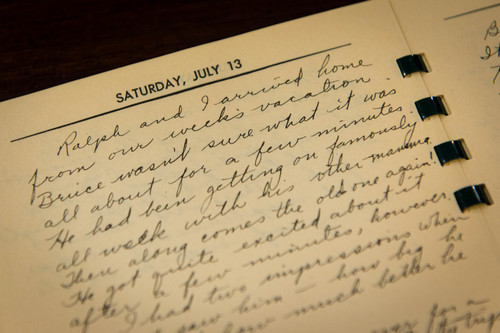 SATURDAY, JULY 13
Ralph and I arrived home
from our week's vacation.
Bruce wasn't sure what it was
all about for a few minutes.
He had been getting on famously
all week with his other mamma.
Then along comes the old one again!
He got quite excited about it
after a few minutes, however.
I had two impressions when
I saw him - how big he
how much better he
for a